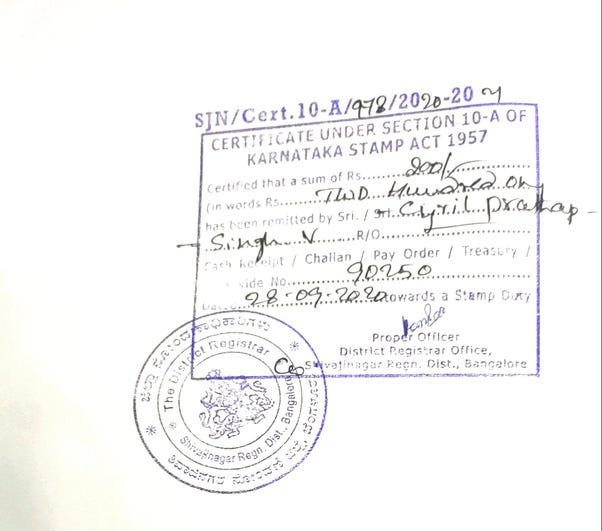 SJN/Cert.10-A/978/2020-20 21
CERTIFICATE UNDER SECTION 10-A OF
KARNATAKA STAMP ACT 1957
Certified that a sum of Rs. 200/-
(in words Rs. Two Hundred only
has been remitted by Sri. / Sri. Cyril Prathap
Singh V R/O
Cash Receipt / Challan / Pay Order / Treasury /
vide No. 90250
Dated 28-09-2020 towards a Stamp Duty
Proper Officer
District Registrar Office,
Shivajinagar Regn. Dist., Bangalore
ಜಿಲ್ಲಾ ನೋಂದಣಾಧಿಕಾರಿಗಳು
The District Registrar
Shivajinagar Regn. Dist., Bangalore
ಶಿವಾಜಿನಗರ ನೋಂದಣಿ ಜಿಲ್ಲೆ ಬೆಂಗಳೂರು